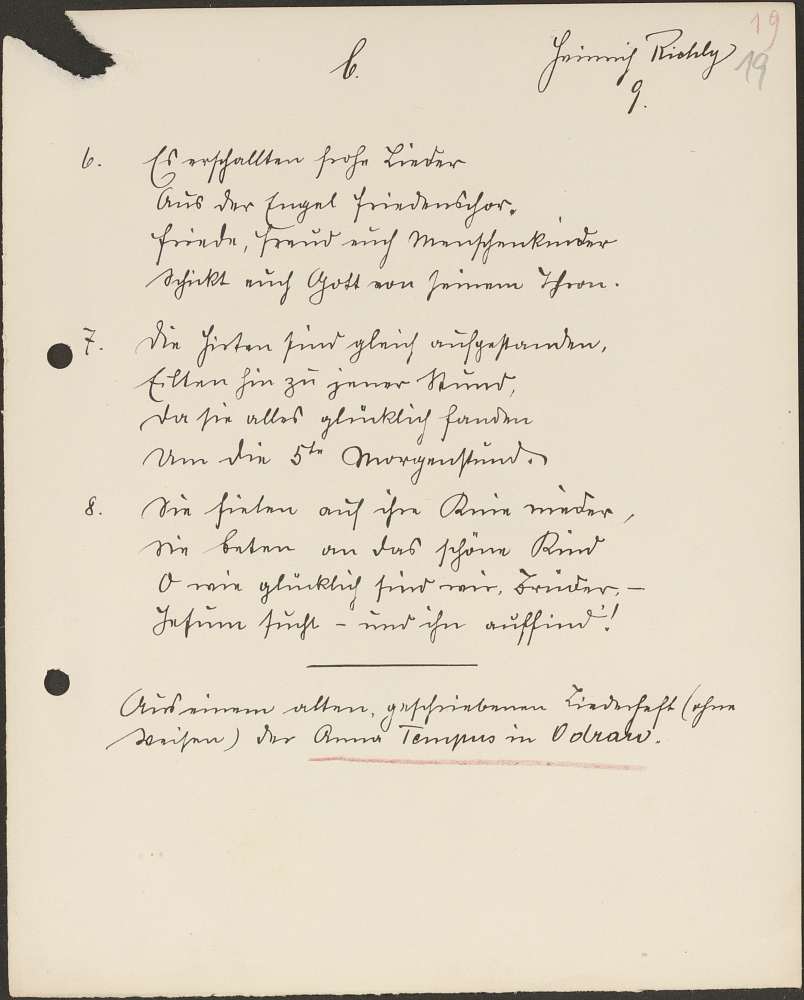 19
b. Heinrich Richly 19
9.
6. Es erschallten frohe Lieder
Aus der Engel Friedenschor.
Friede, Freud euch Menschenkinder
Schickt euch Gott von seinem Thron.
7. Die Hirten sind gleich aufgestanden,
Eilten hin zu jener Stund,
Da sie alles glücklich fanden
Um die 5te Morgenstund.
8. Sie fielen auf ihre Knie nieder,
Sie beten an das schöne Kind
O wie glücklich sind wir, Brüder, –
Jesum sucht – und ihn auffind'!
Aus einem alten, geschriebenen Liederheft (ohne
Weisen) der Anna Tempus in Odrau.